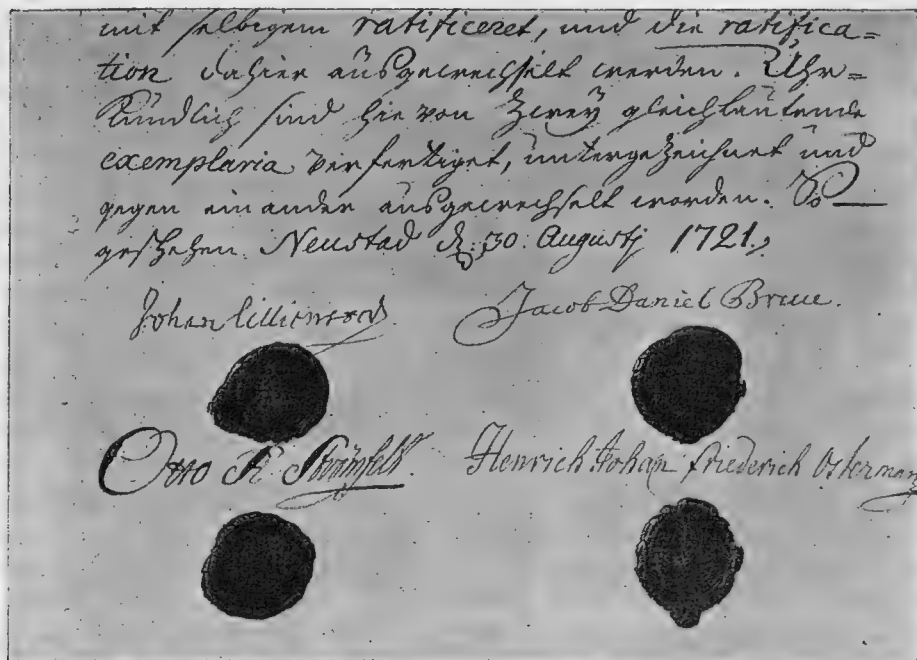 mit selbigem ratificeret, und die ratifica=
tion dahier aüsgewechselt werden. Uhr=
kündlich sind hievon Zweÿ gleichlaütende
exemplaria verfertiget, unterzeichnet und
gegen einander aüsgewechselt worden. So
geschehen Neustad d. 30. Augustj 1721.
Johan Lillienstedt Jacob Daniel Bruce.
Otto R. Strömfelt. Henrich Johan friederich Osterman